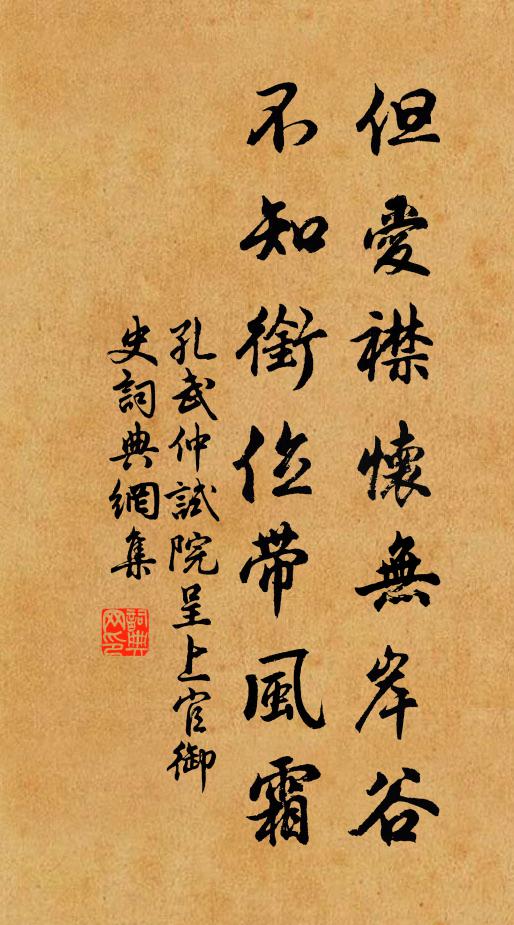 但愛襟懷無岸谷
不知銜位帶風霜
孔武仲試院呈上官御
史詞典網集
詞典
网印